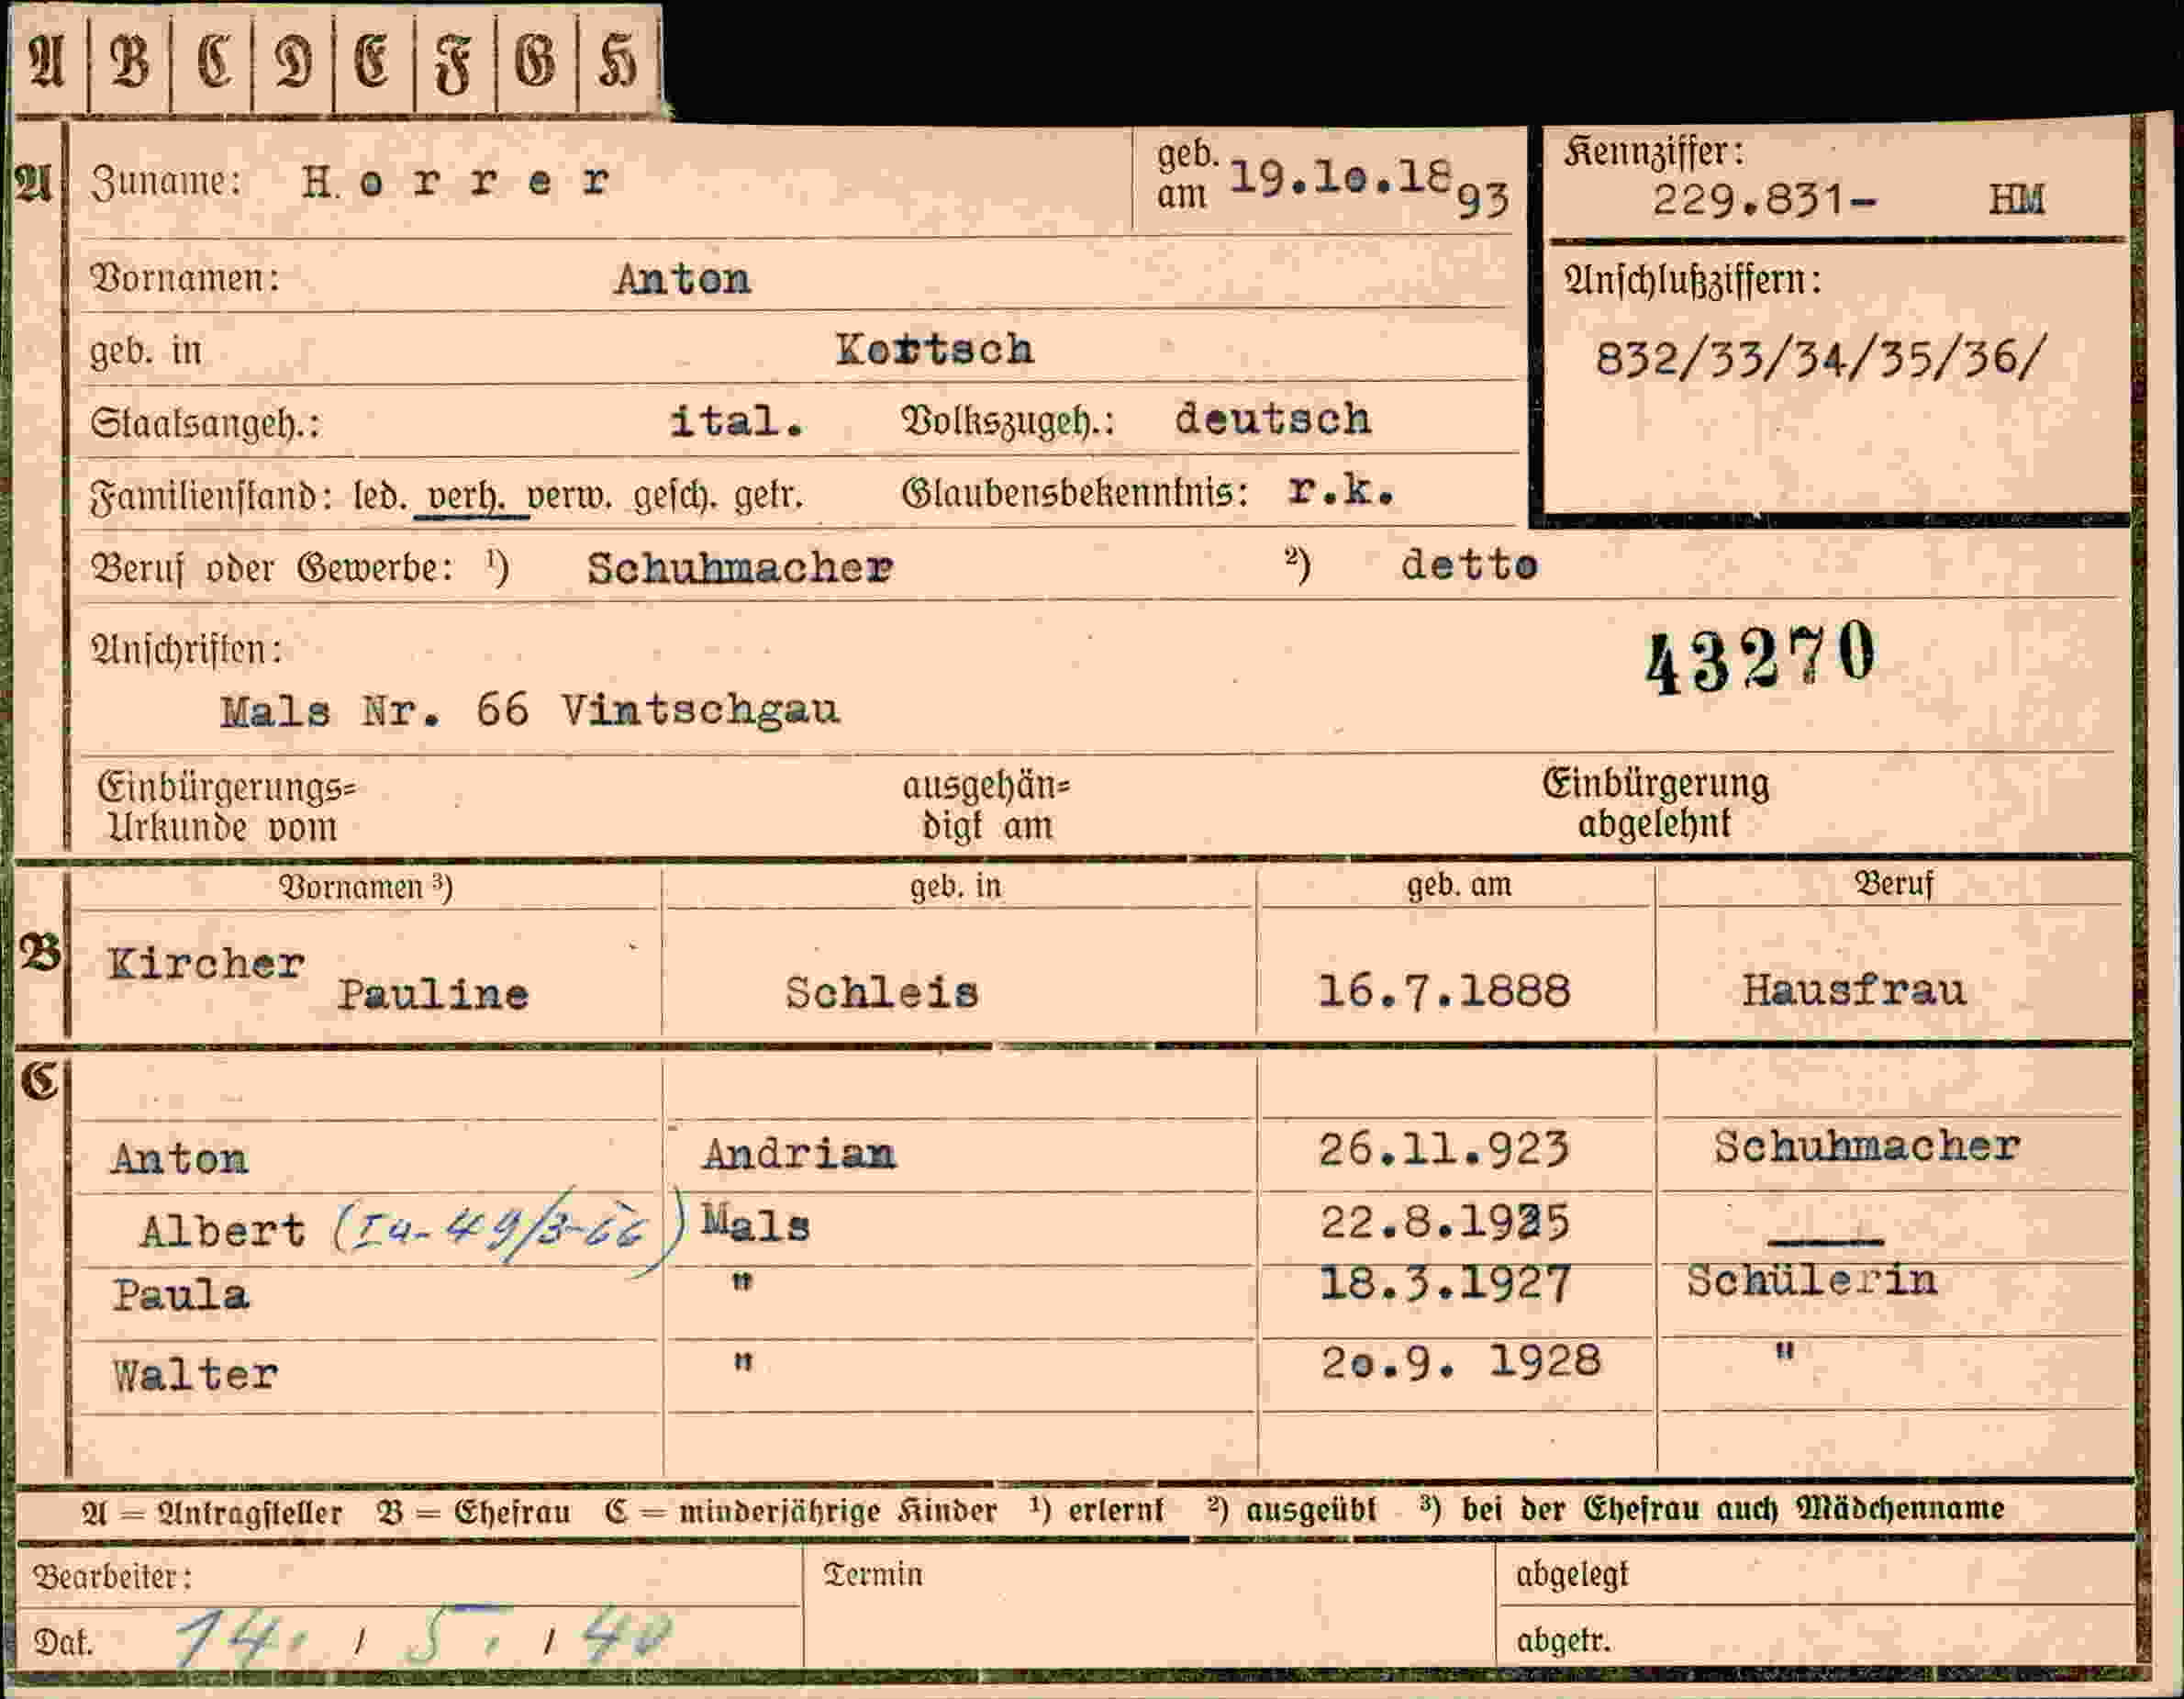 A B C D E F G H
A Zuname: H o r r e r geb. am 19.10.1893 Kennziffer:
229.831- HM
Vornamen: Anton Anschlußziffern:
geb. in Kortsch 832/33/34/35/36/
Staatsangeh.: ital. Volkszugeh.: deutsch
Familienstand: led. verh. verw. gesch. getr. Glaubensbekenntnis: r.k.
Beruf oder Gewerbe: ¹) Schuhmacher ²) detto
Anschriften: 43270
Mals Nr. 66 Vintschgau
Einbürgerungs= ausgehän= Einbürgerung
Urkunde vom digt am abgelehnt
Vornamen ³) geb. in geb. am Beruf
B Kircher
Pauline Schleis 16.7.1888 Hausfrau
C
Anton Andrian 26.11.923 Schuhmacher
Albert (Ia-49/3-66) Mals 22.8.1925 ——
Paula " 18.3.1927 Schülerin
Walter " 20.9. 1928 "
A = Antragsteller B = Ehefrau C = minderjährige Kinder ¹) erlernt ²) ausgeübt ³) bei der Ehefrau auch Mädchenname
Bearbeiter: Termin abgelegt
Dat. 14. / 5. / 40 abgetr.